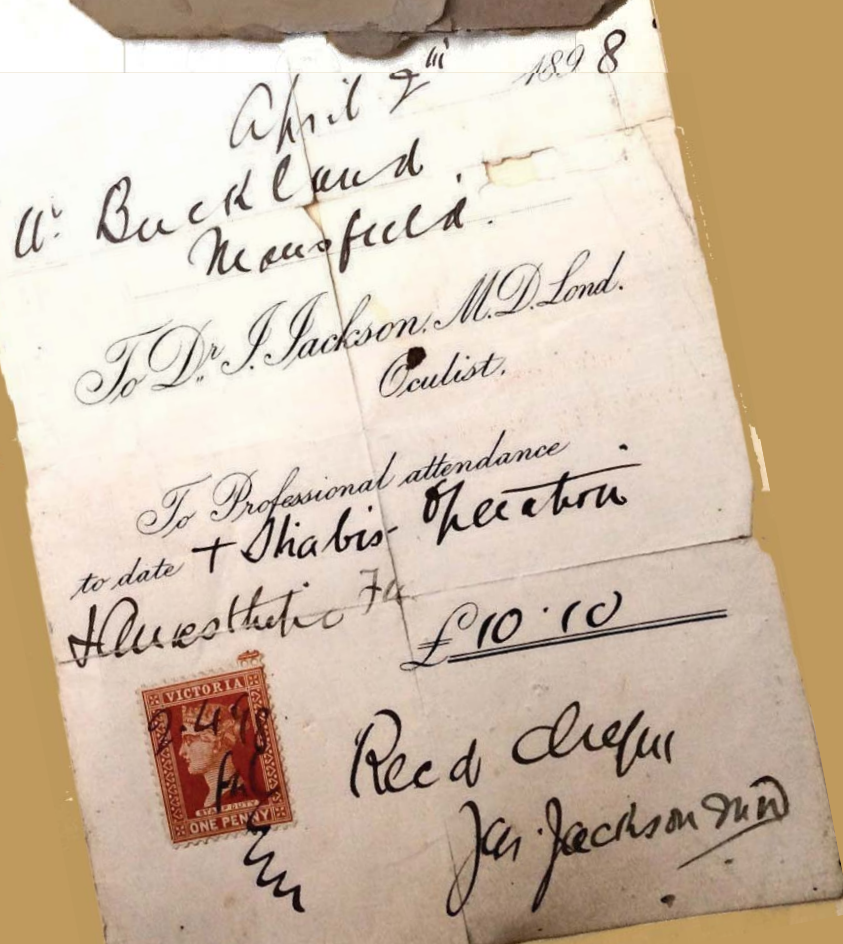 April 2nd 1898
Mr Buckland
Mansfield.
To Dr. J. Jackson. M.D. Lond.
Oculist.
To Professional attendance
to date + Strabis- Operation
+ Anaesthetic Fee
£10.10
VICTORIA
2.4.98
STAMP DUTY
ONE PENNY
Recd cheque
Jas. Jackson MD